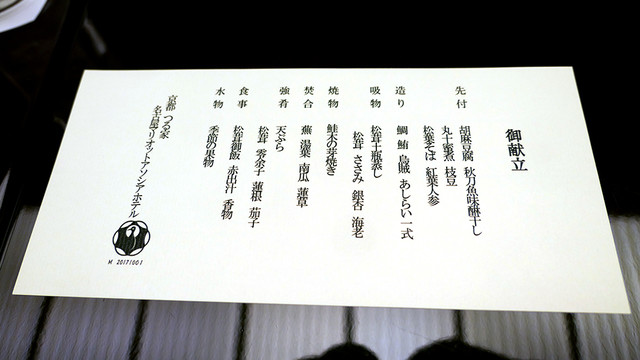 御献立
先付 胡麻豆腐 秋刀魚味醂干し
丸十蜜煮 枝豆
松葉そば 紅葉人参
造り 鯛 鮪 烏賊 あしらい一式
吸物 松茸土瓶蒸し
松茸 ささみ 銀杏 海老
焼物 鮭木の芽焼き
焚合 蕪 湯葉 南瓜 蓮草
強肴 天ぷら
松茸 零余子 蓮根 茄子
食事 松茸御飯 赤出汁 香物
水物 季節の果物
京都 つる家
名古屋マリオットアソシアホテル
M 20171001